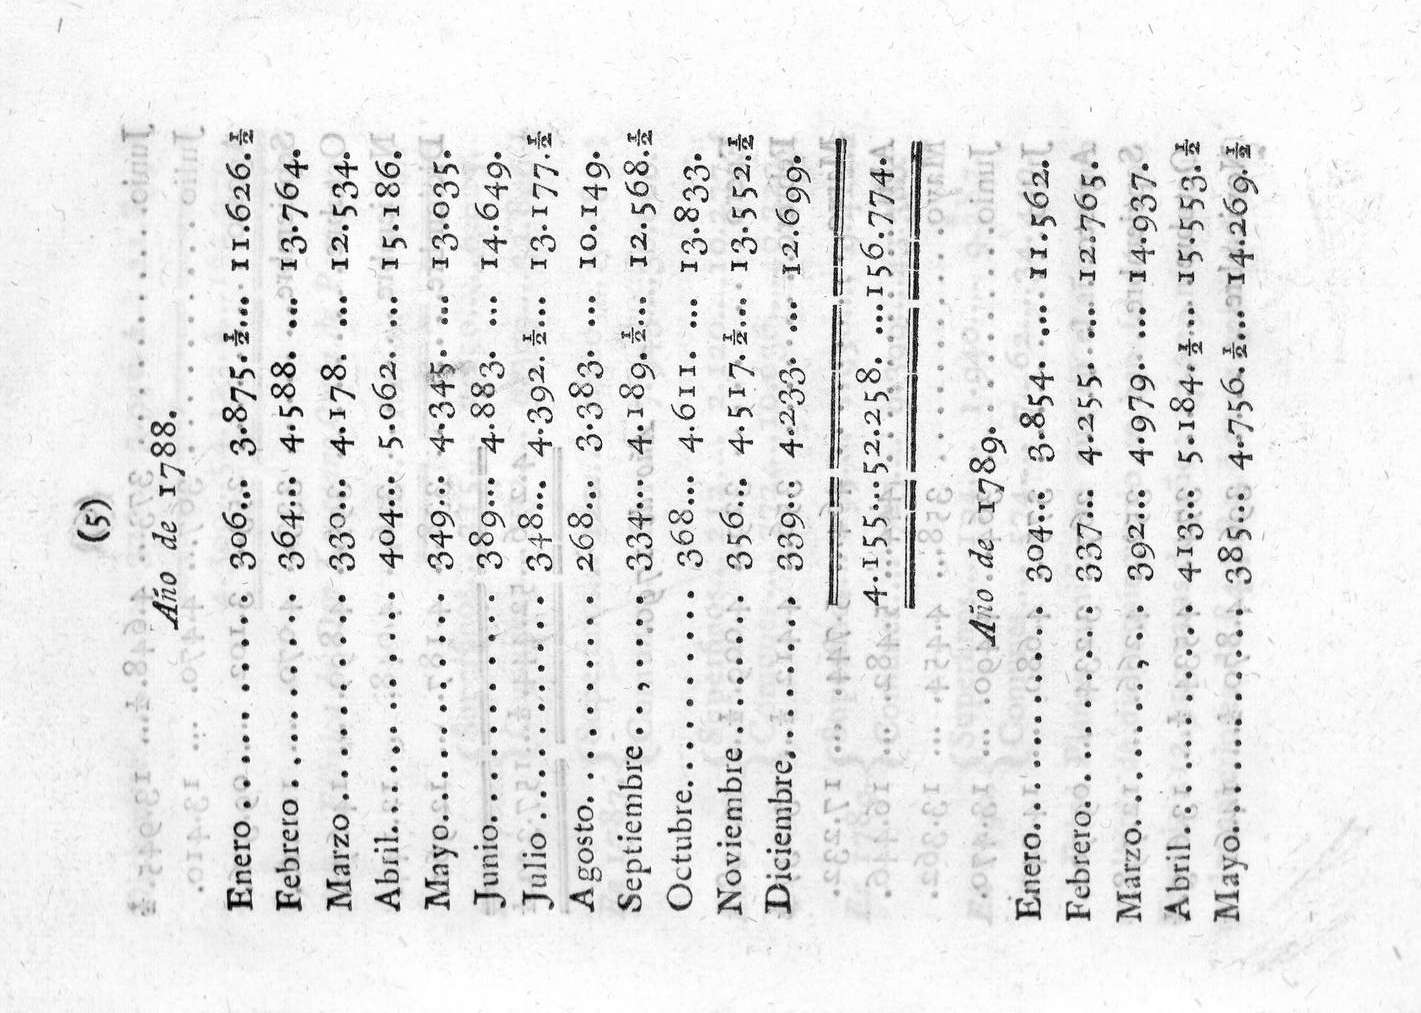 (5)
Año de 1788.
Enero.......... 306... 3.875.½... 11.626.½
Febrero......... 364... 4.588. ... 13.764.
Marzo.......... 330... 4.178. ... 12.534.
Abril........... 404... 5.062. ... 15.186.
Mayo........... 349... 4.345. ... 13.035.
Junio........... 389... 4.883. ... 14.649.
Julio........... 348... 4.392.½... 13.177.½
Agosto.......... 268... 3.383. ... 10.149.
Septiembre..,..... 334... 4.189.½... 12.568.½
Octubre......... 368... 4.611. ... 13.833.
Noviembre....... 356... 4.517.½... 13.552.½
Diciembre........ 339... 4.233. ... 12.699.
4.155...52.258. ...156.774.
Año de 1789.
Enero........... 304... 3.854. ... 11.562.
Febrero.......... 337... 4.255. ... 12.765.
Marzo.......,... 392... 4.979. ... 14.937.
Abril............ 413... 5.184.½... 15.553.½
Mayo............ 385... 4.756.½... 14.269.½